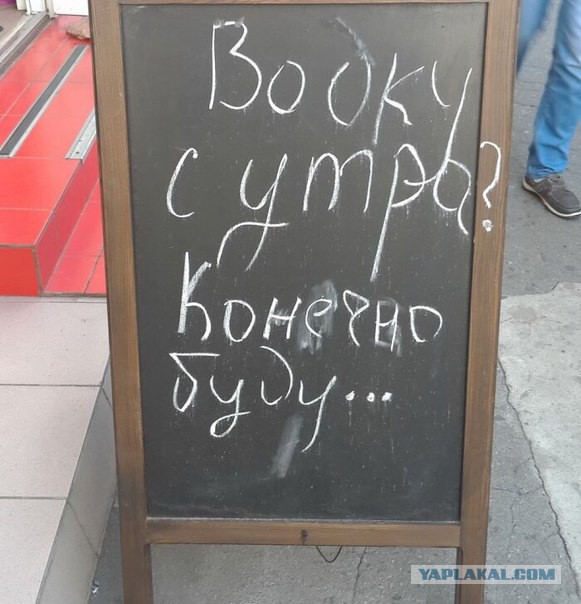 Водку
с утра?
Конечно
буду...
YAPLAKAL.COM